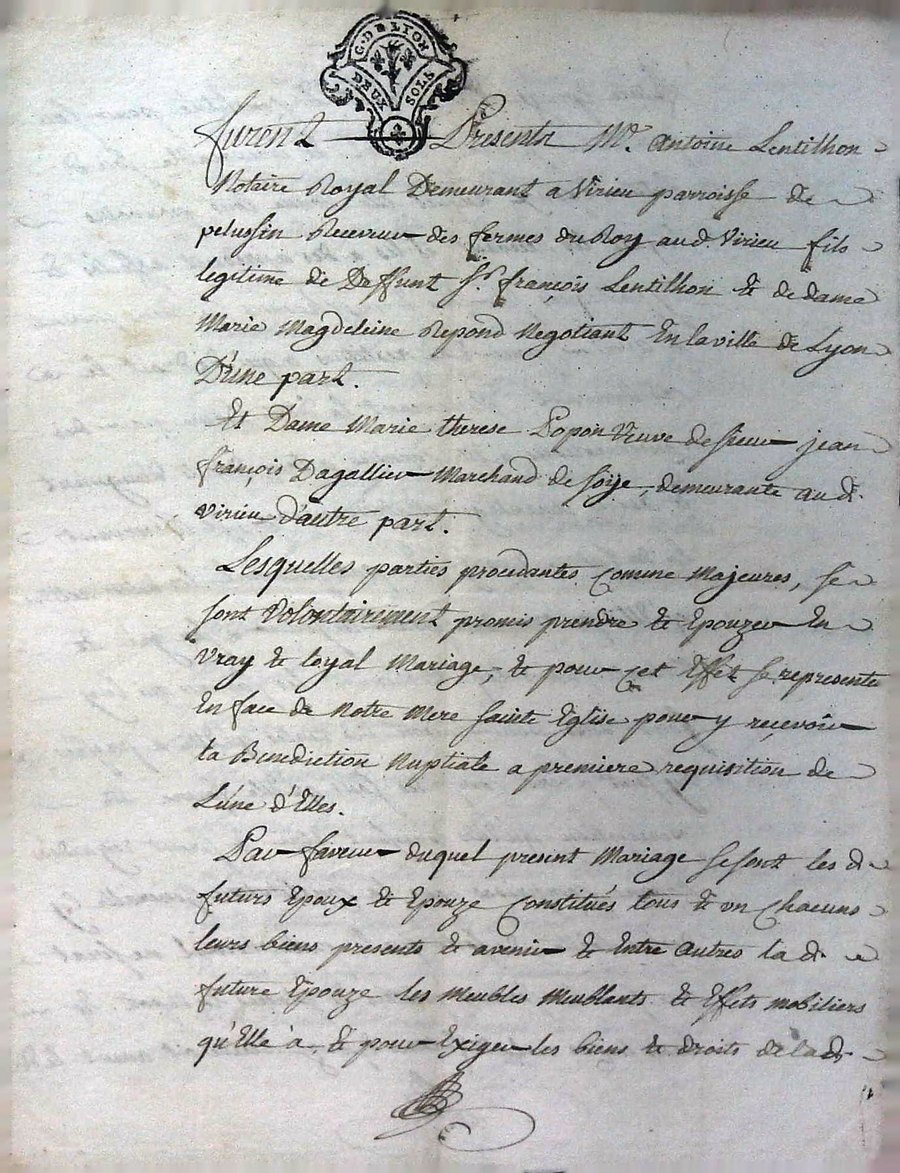 G. DE LYON
DEUX SOLS
Furent Presents Mr. Antoine Lentilhon
Notaire Royal Demeurant a Virieu parroisse de
pelussin Receveur des fermes du Roy aud. Virieu fils
legitime de Deffunt Sr. françois Lentilhon & de dame
Marie Magdeleine Repond Negotiant En la ville de Lyon
D'une part.
Et Dame Marie therese Popon Veuve de sieur jean
françois Dagallier Marchand de soÿe, demeurante aud.
Virieu d'autre part.
Lesquelles parties procedantes comme Majeures, se
sont Volontairement promis prendre & Epouzer En
Vray & loyal Mariage, & pour cet Effet se representer
En face de Notre Mere Sainte Eglise pour y reçevoir
la Benediction Nuptiale a premiere requisition de
L'une d'Elles.
Par faveur duquel present Mariage se sont les d.
futurs Epoux & Epouze Constitués tous & un chacuns
leurs biens presents & avenir & Entre autres la d.
future Epouze les Meubles Meublants & Effets mobiliers
qu'Elle à, & pour Exiger les biens & droits de lad.